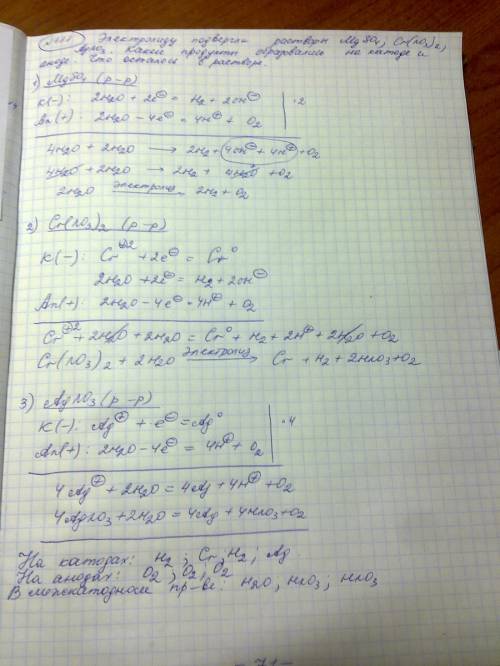 Электролизу подвергли растворы MgSO₄, Cr(NO₃)₂,
AgNO₃. Какие продукты образовались на катоде и
аноде. Что осталось в растворе.
1) MgSO₄ (р-р)
K(-): 2H₂O + 2e⊖ = H₂ + 2OH⊖ | ·2
An(+): 2H₂O - 4e⊖ = 4H⊕ + O₂
4H₂O + 2H₂O → 2H₂ + 4OH⊖ + 4H⊕ + O₂
4H₂O + 2H₂O → 2H₂ + 4H₂O + O₂
2H₂O электролиз 2H₂ + O₂
2) Cr(NO₃)₂ (р-р)
K(-): Cr⊕2 + 2e⊖ = Cr⁰
2H₂O + 2e⊖ = H₂ + 2OH⊖
An(+): 2H₂O - 4e⊖ = 4H⊕ + O₂
Cr⊕2 + 2H₂O + 2H₂O = Cr⁰ + H₂ + 2H⊕ + 2H₂O + O₂
Cr(NO₃)₂ + 2H₂O электролиз → Cr + H₂ + 2HNO₃ + O₂
3) AgNO₃ (р-р)
K(-): Ag⊕ + e⊖ = Ag⁰ | ·4
An(+): 2H₂O - 4e⊖ = 4H⊕ + O₂
4Ag⊕ + 2H₂O = 4Ag + 4H⊕ + O₂
4AgNO₃ + 2H₂O = 4Ag + 4HNO₃ + O₂
На катодах: H₂; Cr, H₂; Ag
На анодах: O₂; O₂; O₂
В межкатодном пр-ве: H₂O, HNO₃; HNO₃
- 71 -